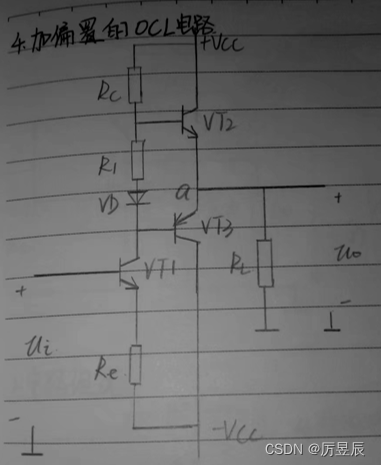 4.加偏置的OCL电路
+VCC
Rc
VT2
R1
VD
a
+
VT3
VT1
RL
uo
+
-
ui
Re
-
-VCC
CSDN @厉昱辰